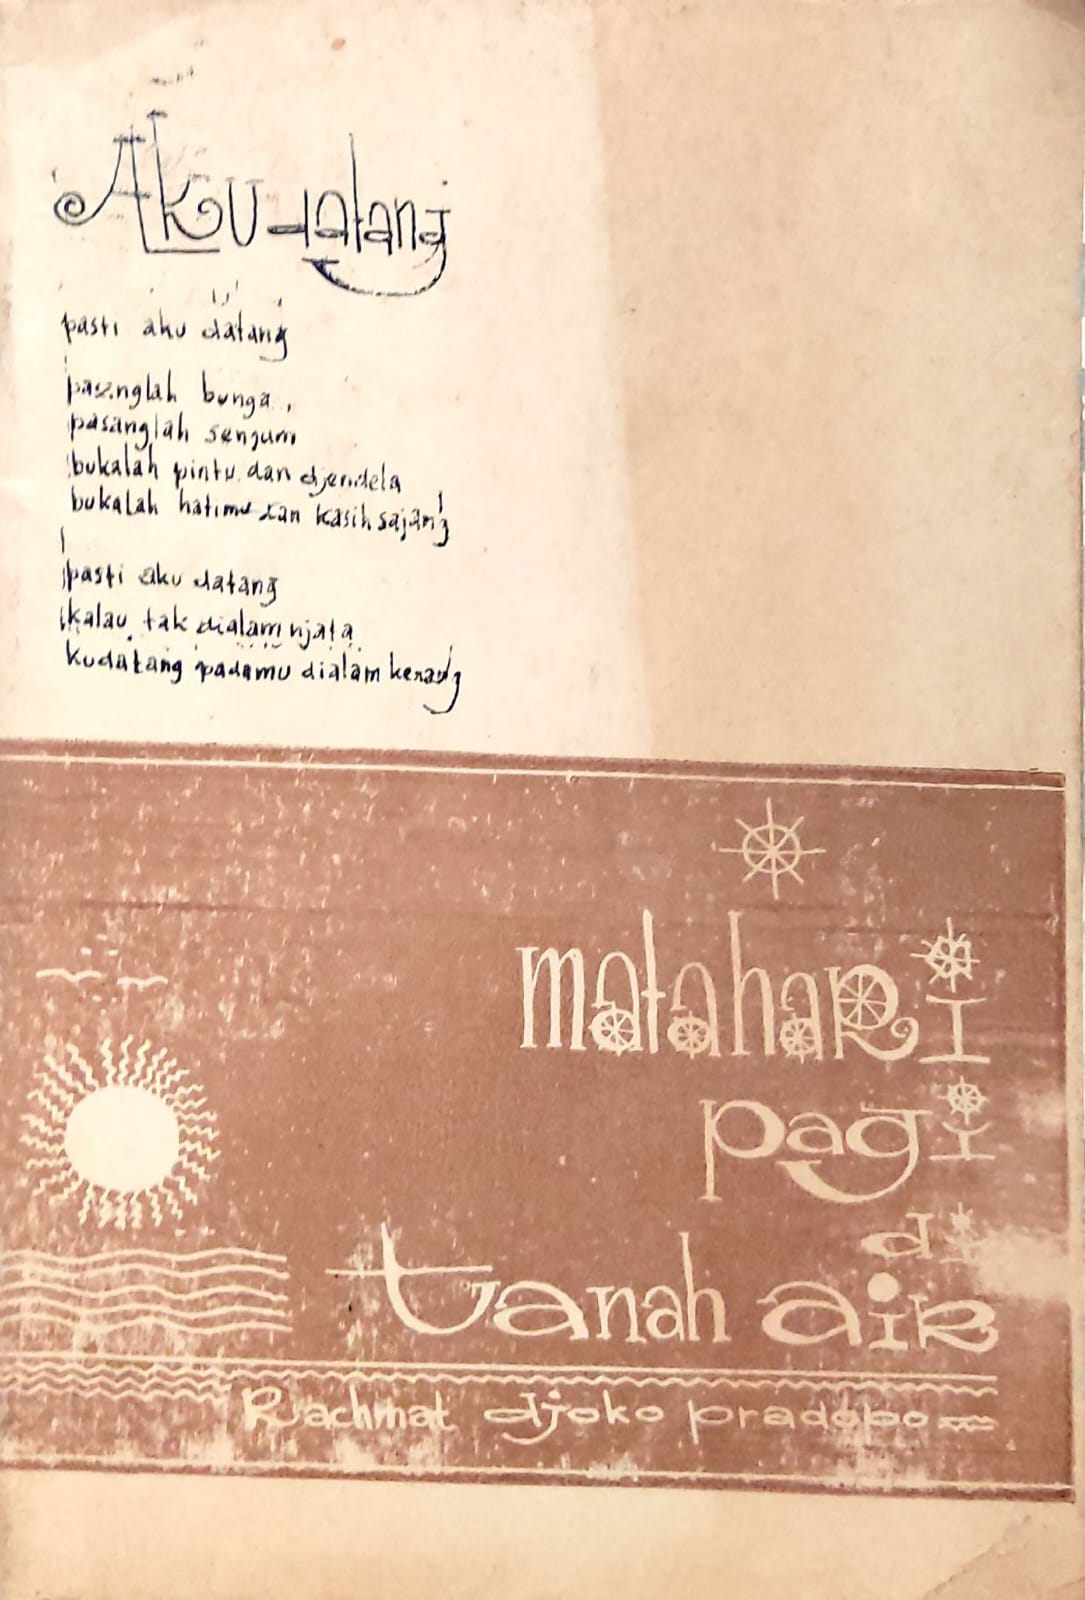 Aku datang
pasti aku datang
pasanglah bunga,
pasanglah senjum
bukalah pintu dan djendela
bukalah hatimu dan kasih sajang
pasti aku datang
kalau tak dialam njata
kudatang padamu dialam kenang
mataharI
pagi
di
tanah aiR
Rachmat djoko pradopo